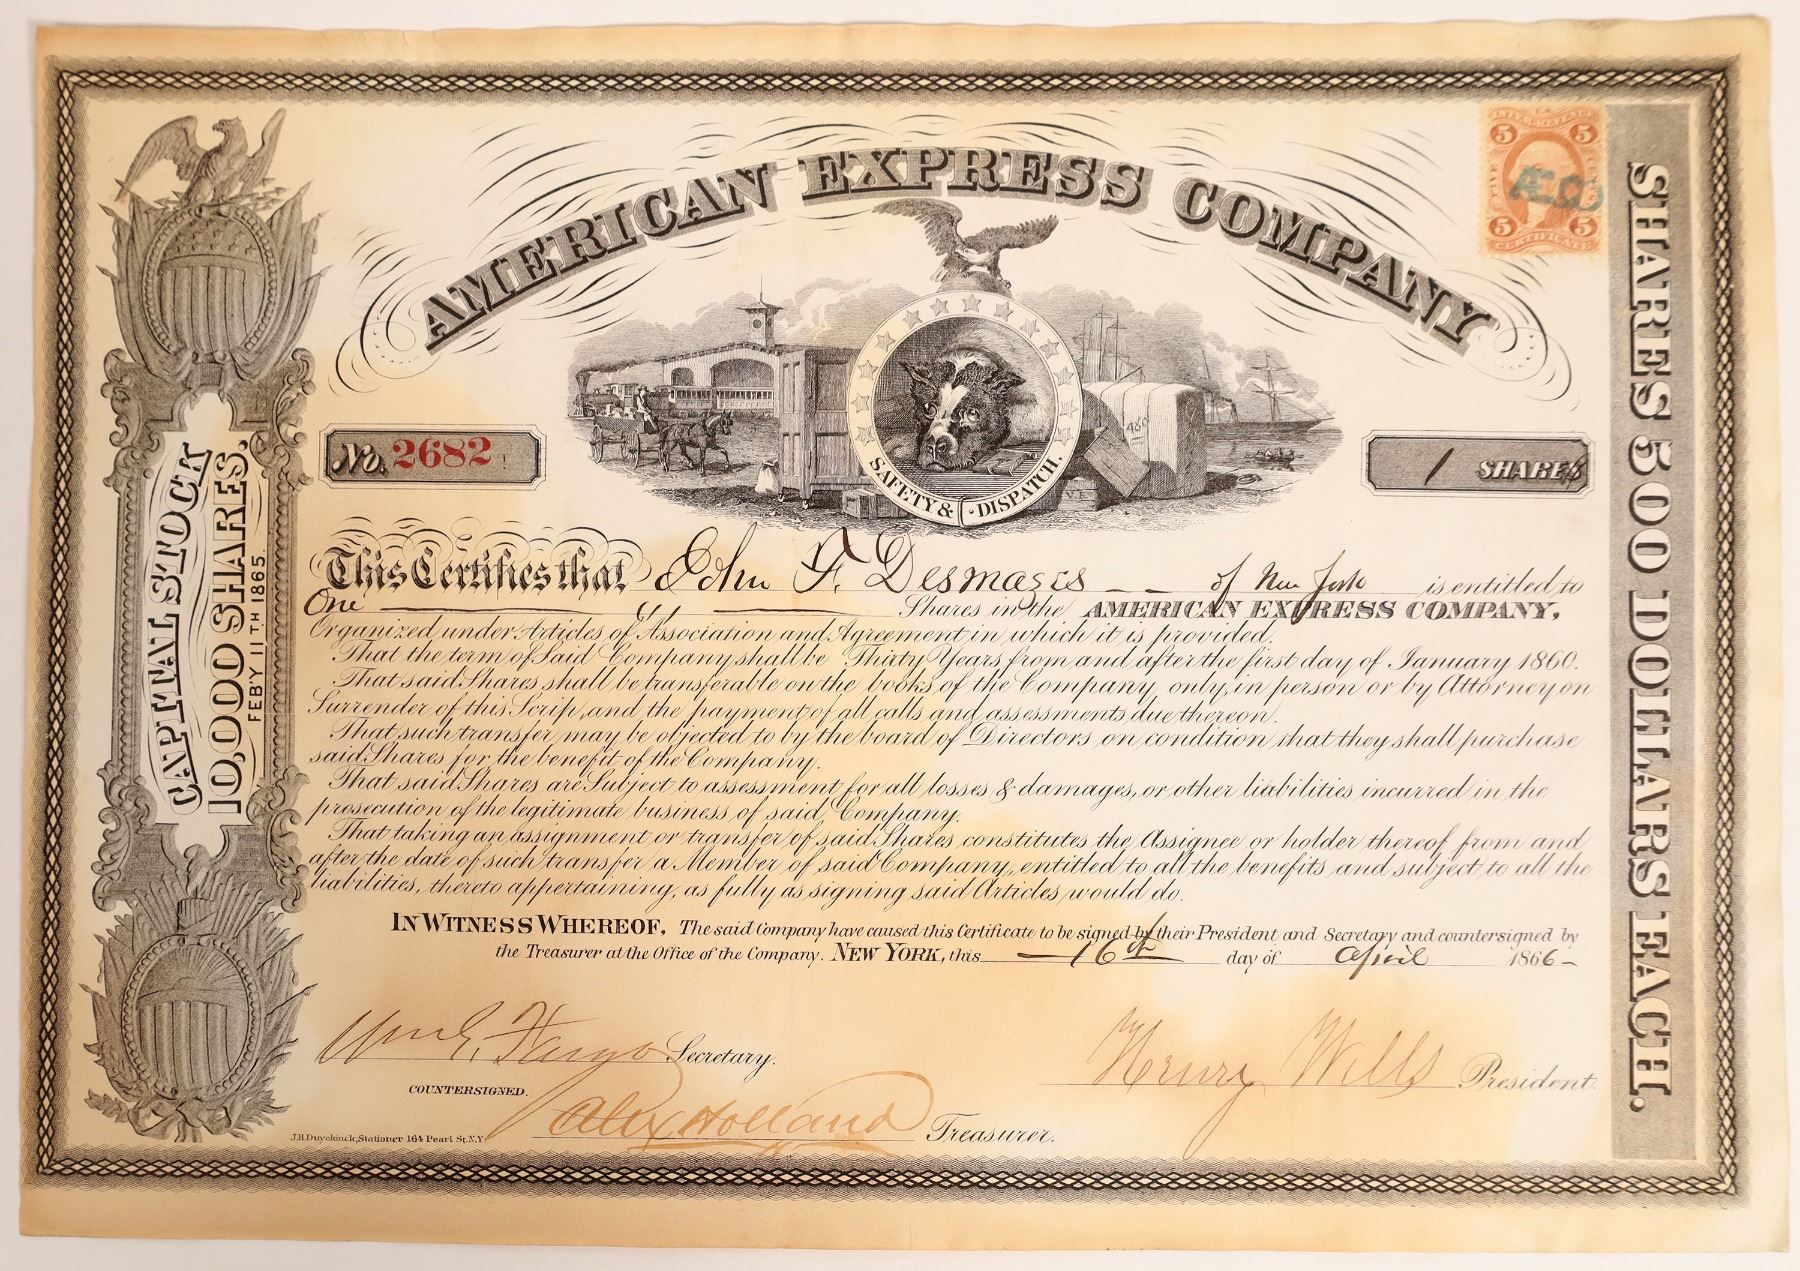 AMERICAN EXPRESS COMPANY
INTER. REVENUE
5 5
FIVE CENTS
5 5
CERTIFICATE
CAPITAL STOCK
10,000 SHARES.
FEB'Y 11TH 1865.
SHARES 500 DOLLARS EACH.
No. 2682
SAFETY & DISPATCH.
480
1 SHARES
This Certifies that John F. Desmazes of New York is entitled to
One Shares in the AMERICAN EXPRESS COMPANY,
Organized under Articles of Association and Agreement in which it is provided.
That the term of Said Company shall be Thirty Years from and after the first day of January 1860.
That said Shares shall be transferable on the books of the Company, only, in person or by Attorney on
Surrender of this Scrip, and the payment of all calls and assessments due thereon.
That such transfer may be objected to by the board of Directors on condition that they shall purchase
said Shares for the benefit of the Company.
That said Shares are Subject to assessment for all losses & damages, or other liabilities incurred in the
prosecution of the legitimate business of said Company.
That taking an assignment or transfer of said Shares constitutes the Assignee or holder thereof from and
after the date of such transfer a Member of said Company, entitled to all the benefits and subject to all the
liabilities, thereto appertaining, as fully as signing said Articles would do.
IN WITNESS WHEREOF, The said Company have caused this Certificate to be signed by their President and Secretary and countersigned by
the Treasurer at the Office of the Company. NEW YORK, this 16th day of April 1866
Wm G. Fargo Secretary.
Henry Wells President.
COUNTERSIGNED.
Alex Holland Treasurer.
J.H. Duyckinck, Stationer 164 Pearl St. N.Y.